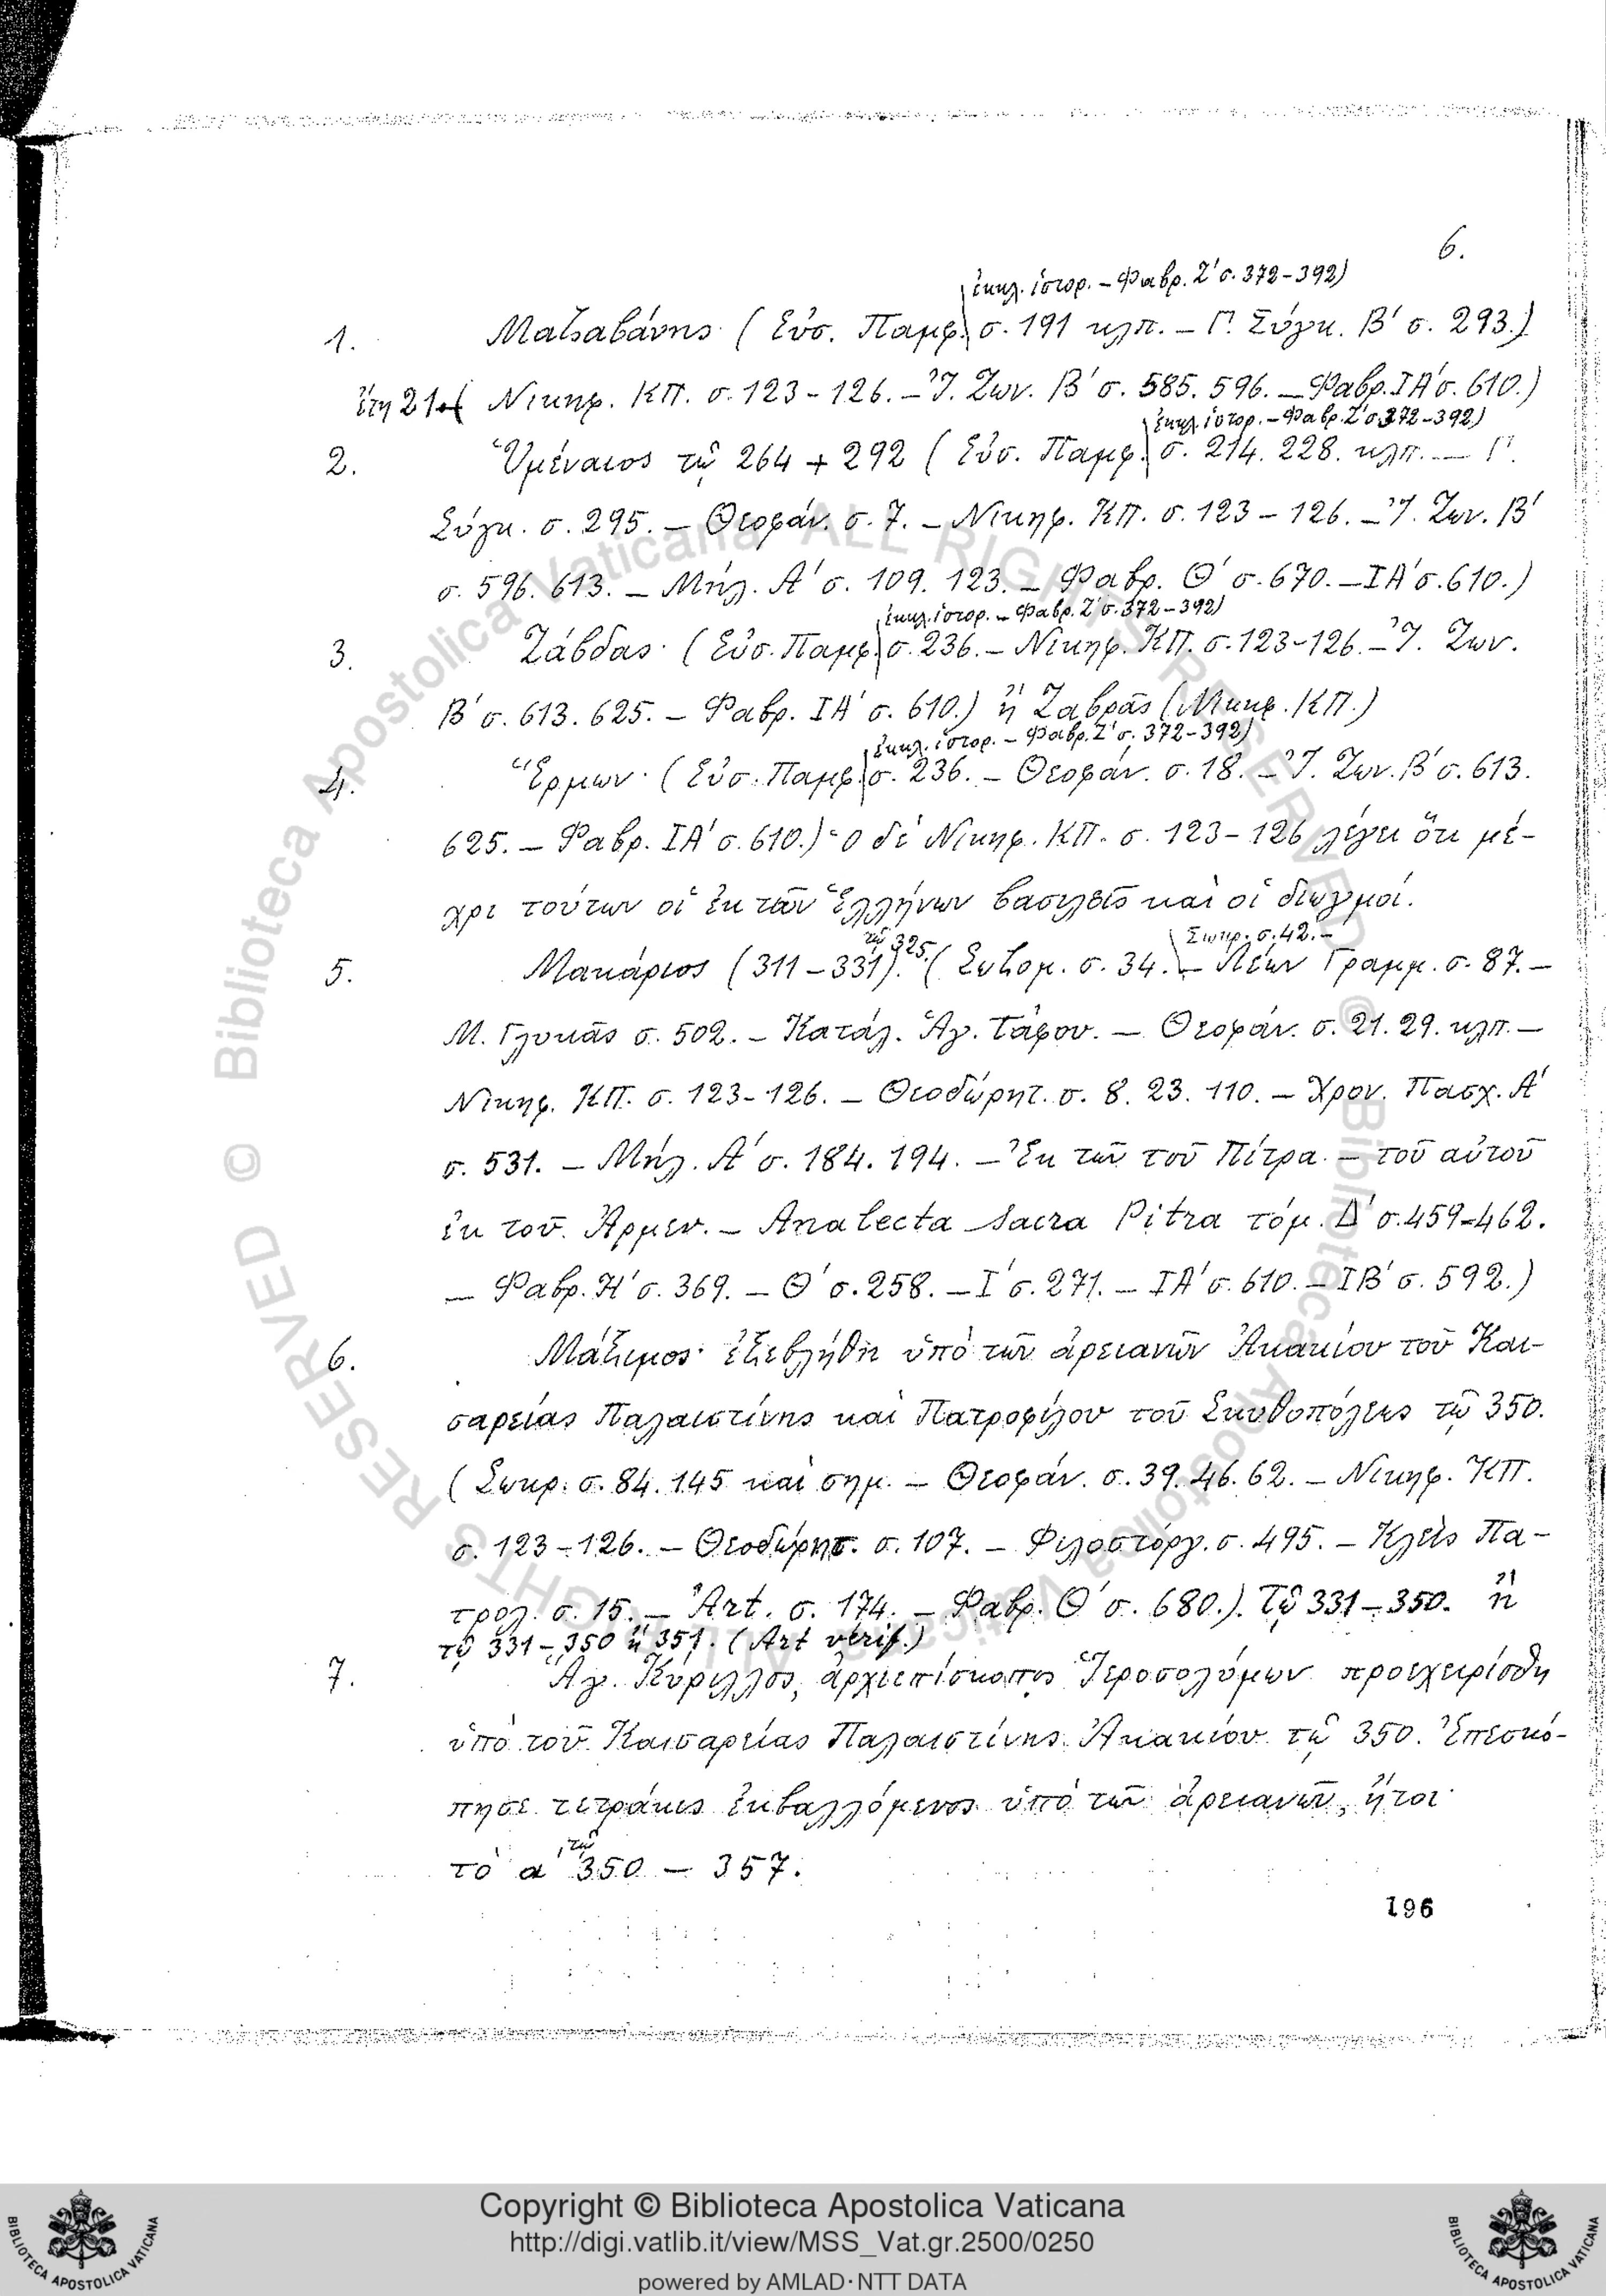 6.
ἐκκλ. ἱστορ. – Φαβρ. Ζ' σ. 372-392)
1. Ματζαβάνης· (Εὐσ. Παμφ. σ. 191 κλπ. – Γ. Σύγκ. Β' σ. 293.)
ἔτη 21 Νικηφ. ΚΠ. σ. 123-126. – Ἰ. Ζων. Β' σ. 585. 596. – Φαβρ. ΙΑ' σ. 610.)
ἐκκλ. ἱστορ. – Φαβρ. Ζ' σ. 372-392)
2. Ὑμέναιος τῷ 264 + 292 (Εὐσ. Παμφ. σ. 214. 228. κλπ. – Γ.
Σύγκ. σ. 295. – Θεοφάν. σ. 7. – Νικηφ. ΚΠ. σ. 123-126. – Ἰ. Ζων. Β'
σ. 596. 613. – Μήλ. Α' σ. 109. 123. – Φαβρ. Θ' σ. 670. – ΙΑ' σ. 610.)
ἐκκλ. ἱστορ. – Φαβρ. Ζ' σ. 372-392)
3. Ζάβδας· (Εὐσ. Παμφ. σ. 236. – Νικηφ. ΚΠ. σ. 123-126. – Ἰ. Ζων.
Β' σ. 613. 625. – Φαβρ. ΙΑ' σ. 610.) ἢ Ζαβρᾶς (Νικηφ. ΚΠ.)
ἐκκλ. ἱστορ. – Φαβρ. Ζ' σ. 372-392)
4. Ἕρμων· (Εὐσ. Παμφ. σ. 236. – Θεοφάν. σ. 18. – Ἰ. Ζων. Β' σ. 613.
625. – Φαβρ. ΙΑ' σ. 610.) ὁ δὲ Νικηφ. ΚΠ. σ. 123-126 λέγει ὅτι μέ-
χρι τούτων οἱ ἐκ τῶν Ἑλλήνων βασιλεῖς καὶ οἱ διωγμοί.
τῷ 325. Σωκρ. σ. 42. –
5. Μακάριος (311-331). (Σωζομ. σ. 34. – Λέων Γραμμ. σ. 87. –
Μ. Γλυκᾶς σ. 502. – Κατάλ. Ἁγ. Τάφου. – Θεοφάν. σ. 21. 29. κλπ. –
Νικηφ. ΚΠ. σ. 123-126. – Θεοδώρητ. σ. 8. 23. 110. – Χρον. Πασχ. Α'
σ. 531. – Μήλ. Α' σ. 184. 194. – Ἐκ τῶν τοῦ Πίτρα – τοῦ αὐτοῦ
ἐκ τοῦ Ἀρμεν. – Analecta Sacra Pitra τόμ. Δ' σ. 459-462.
– Φαβρ. Η' σ. 369. – Θ' σ. 258. – Ι' σ. 271. – ΙΑ' σ. 610. – ΙΒ' σ. 592.)
6. Μάξιμος· ἐξεβλήθη ὑπὸ τῶν ἀρειανῶν Ἀκακίου τοῦ Και-
σαρείας Παλαιστίνης καὶ Πατροφίλου τοῦ Σκυθοπόλεως τῷ 350.
(Σωκρ. σ. 84. 145 καὶ σημ. – Θεοφάν. σ. 39. 46. 62. – Νικηφ. ΚΠ.
σ. 123-126. – Θεοδώρητ. σ. 107. – Φιλοστόργ. σ. 495. – Κλεὶς Πα-
τρολ. σ. 15. – Art. σ. 174. – Φαβρ. Θ' σ. 680.). Τῷ 331-350. ἢ
τῷ 331-350 ἢ 351. (Art vérif.)
7. Ἅγ. Κύριλλος, ἀρχιεπίσκοπος Ἱεροσολύμων προεχειρίσθη
ὑπὸ τοῦ Καισαρείας Παλαιστίνης Ἀκακίου τῷ 350. Ἐπεσκό-
πησε τετράκις ἐκβαλλόμενος ὑπὸ τῶν ἀρειανῶν, ἤτοι
τῷ
τὸ α' 350 – 357.
196
Biblioteca Apostolica Vaticana ALL RIGHTS RESERVED ©
Copyright © Biblioteca Apostolica Vaticana
http://digi.vatlib.it/view/MSS_Vat.gr.2500/0250
powered by AMLAD·NTT DATA
BIBLIOTECA APOSTOLICA VATICANA
BIBLIOTECA APOSTOLICA VATICANA